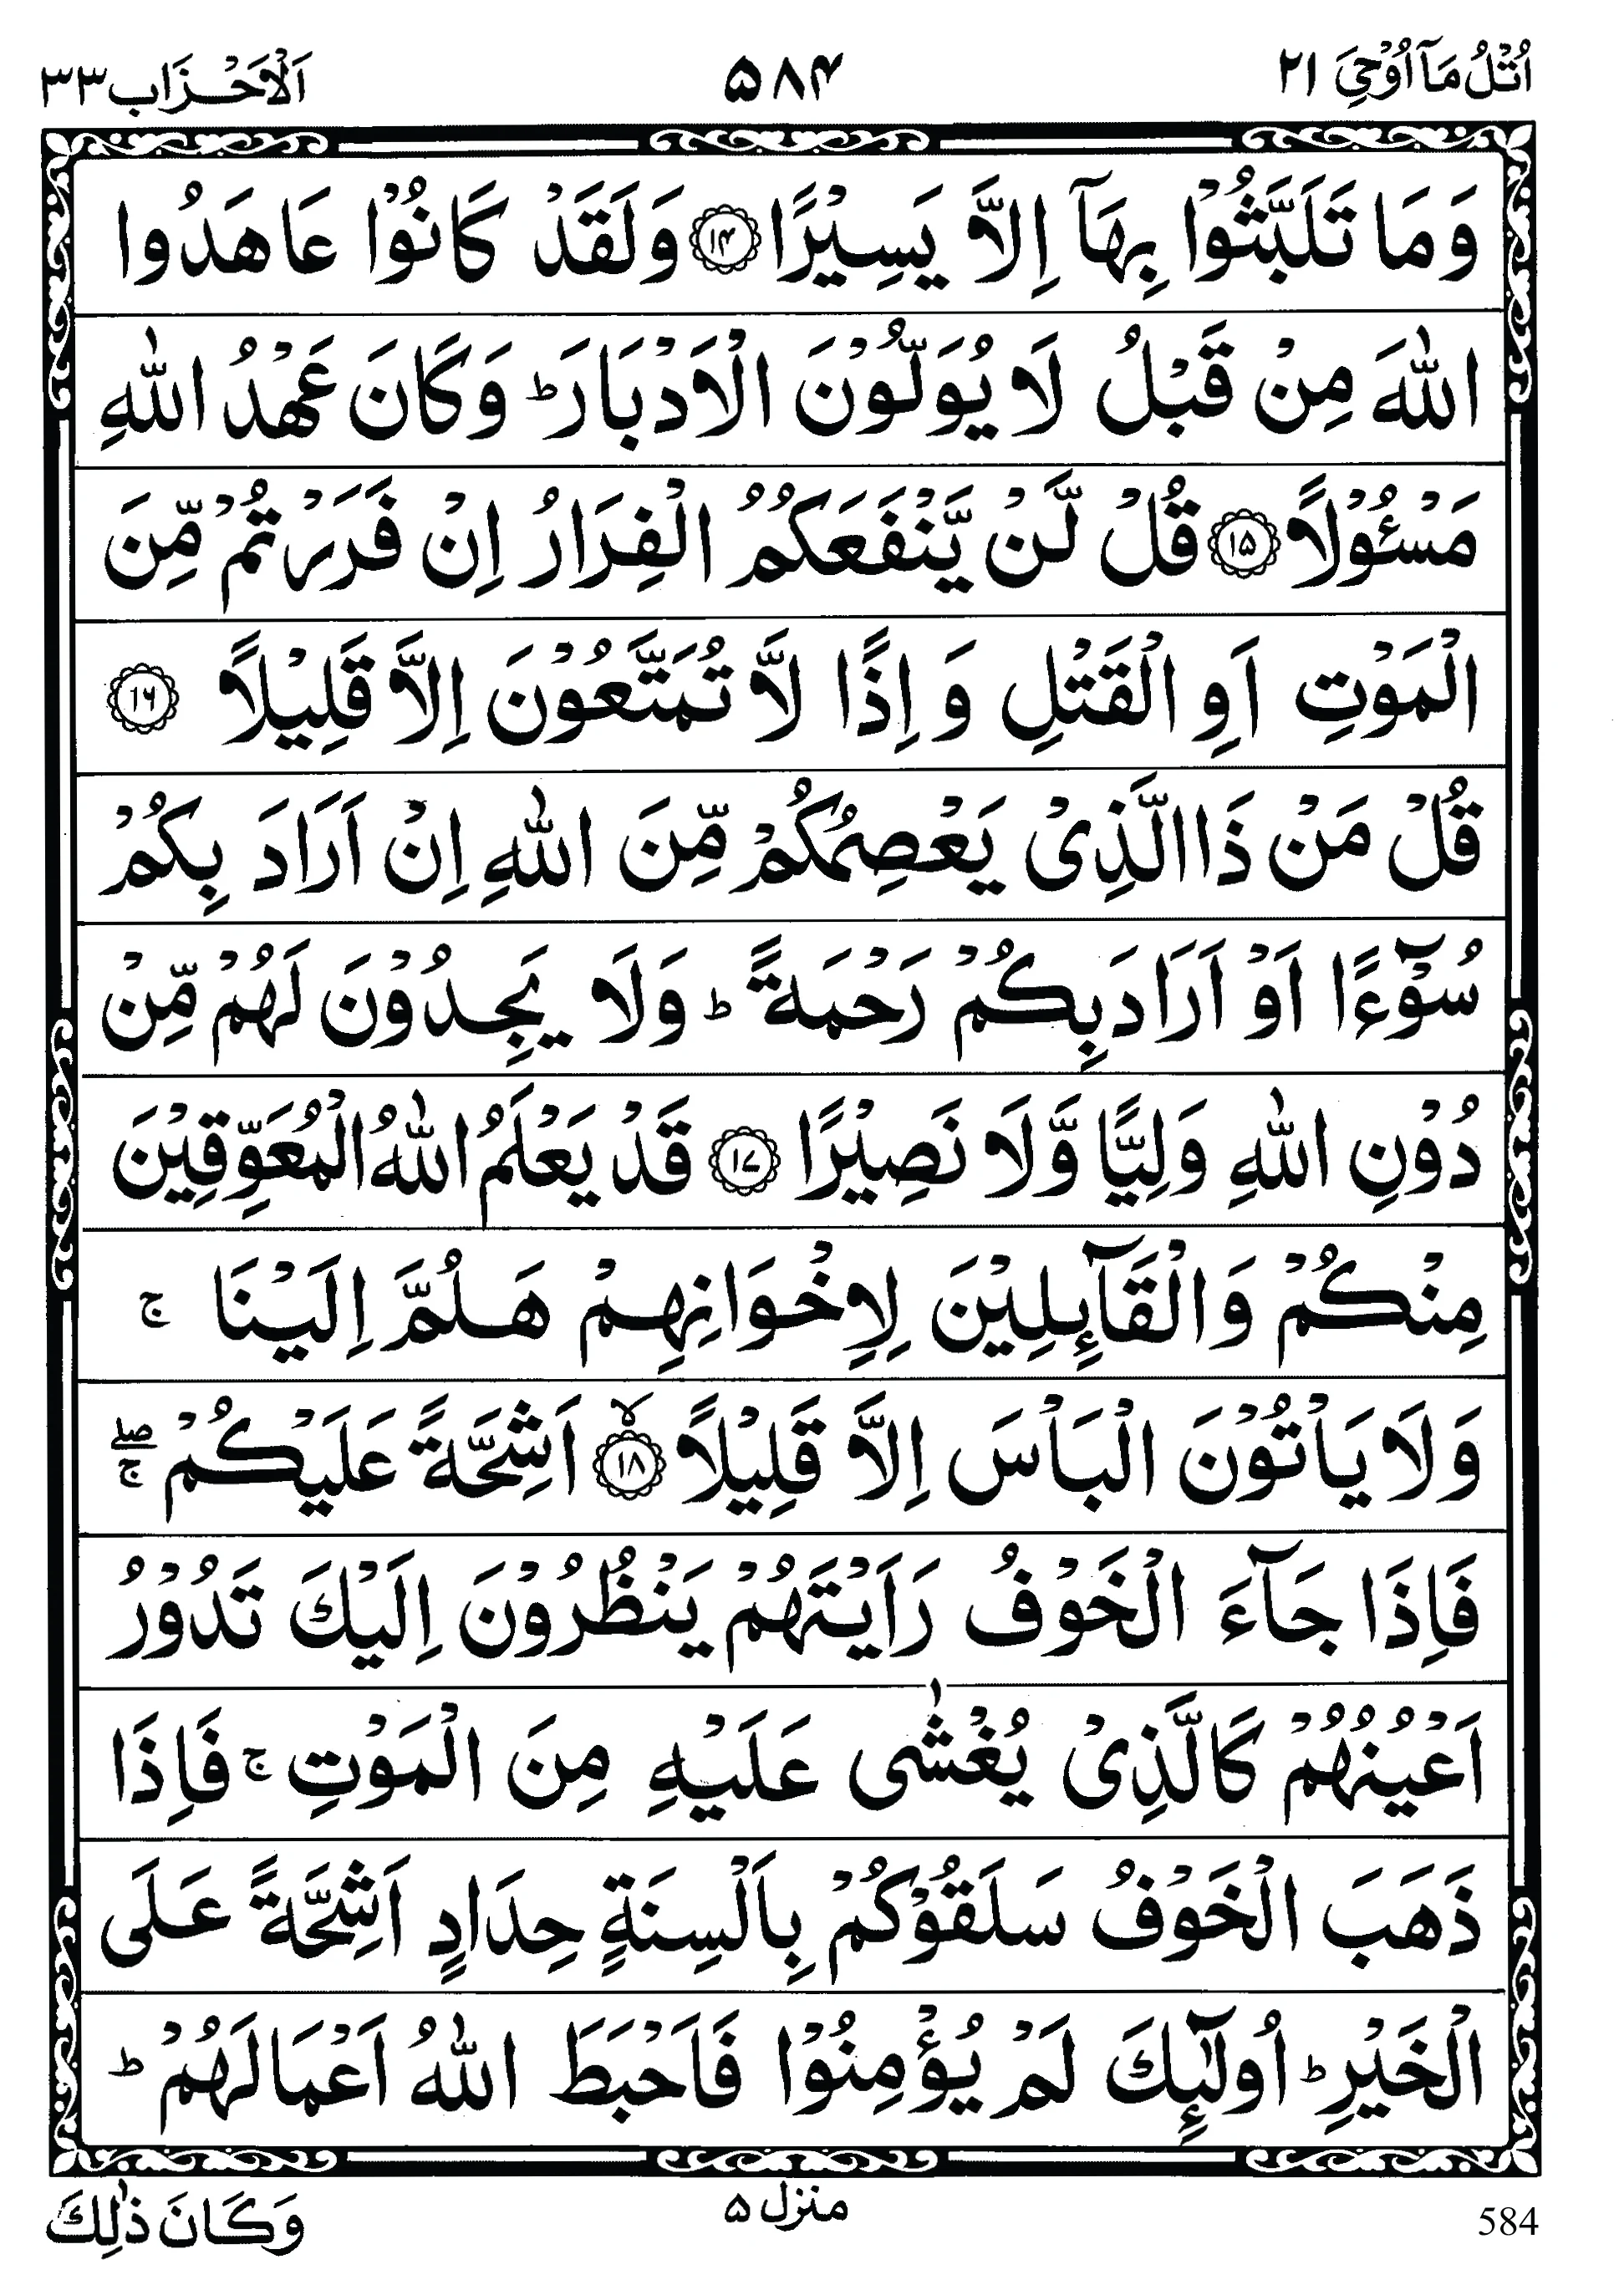 اُتْلُ مَاۤ اُوْحِیَ ۲۱
۵۸۴
اَلْاَحْزَاب ۳۳
وَ مَا تَلَبَّثُوْا بِهَاۤ اِلَّا یَسِیْرًا ۱۴ وَ لَقَدْ كَانُوْا عَاهَدُوا
اللّٰهَ مِنْ قَبْلُ لَا یُوَلُّوْنَ الْاَدْبَارَ ؕ وَ كَانَ عَهْدُ اللّٰهِ
مَسْـُٔوْلًا ۱۵ قُلْ لَّنْ یَّنْفَعَكُمُ الْفِرَارُ اِنْ فَرَرْتُمْ مِّنَ
الْمَوْتِ اَوِ الْقَتْلِ وَ اِذًا لَّا تُمَتَّعُوْنَ اِلَّا قَلِیْلًا ۱۶
قُلْ مَنْ ذَا الَّذِیْ یَعْصِمُكُمْ مِّنَ اللّٰهِ اِنْ اَرَادَ بِكُمْ
سُوْٓءًا اَوْ اَرَادَ بِكُمْ رَحْمَةً ؕ وَ لَا یَجِدُوْنَ لَهُمْ مِّنْ
دُوْنِ اللّٰهِ وَلِیًّا وَّ لَا نَصِیْرًا ۱۷ قَدْ یَعْلَمُ اللّٰهُ الْمُعَوِّقِیْنَ
مِنْكُمْ وَ الْقَآىِٕلِیْنَ لِاِخْوَانِهِمْ هَلُمَّ اِلَیْنَا ۚ
وَ لَا یَاْتُوْنَ الْبَاْسَ اِلَّا قَلِیْلًا ۙ۱۸ اَشِحَّةً عَلَیْكُمْ ۖۚ
فَاِذَا جَآءَ الْخَوْفُ رَاَیْتَهُمْ یَنْظُرُوْنَ اِلَیْكَ تَدُوْرُ
اَعْیُنُهُمْ كَالَّذِیْ یُغْشٰی عَلَیْهِ مِنَ الْمَوْتِ ۚ فَاِذَا
ذَهَبَ الْخَوْفُ سَلَقُوْكُمْ بِاَلْسِنَةٍ حِدَادٍ اَشِحَّةً عَلَی
الْخَیْرِ ؕ اُولٰٓىِٕكَ لَمْ یُؤْمِنُوْا فَاَحْبَطَ اللّٰهُ اَعْمَالَهُمْ ؕ
584
منزل ۵
وَ كَانَ ذٰلِكَ